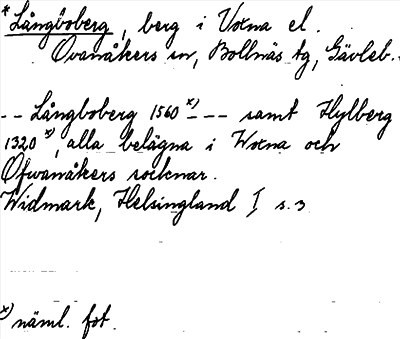 * Långboberg, berg i Voxna el.
Ovanåkers sn, Bollnäs tg, Gävleb.
-- Långboberg 1560 x) --- samt Hylberg
1320 x), alla belägna i Woxna och
Ofwanåkers socknar.
Widmark, Helsingland I s. 3
x) näml. fot.